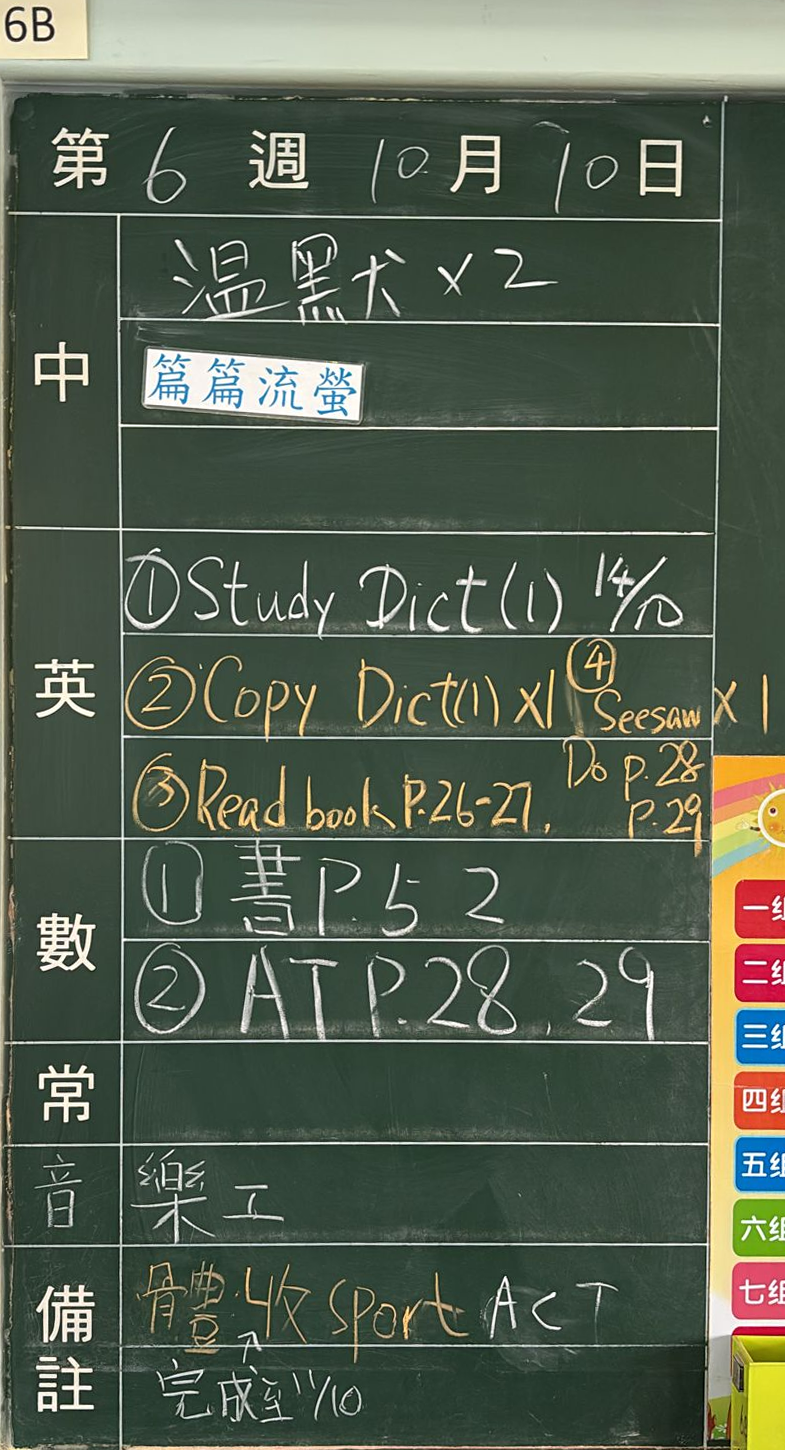 6B
第 6 週 10 月 10 日
中
温默犬 x 2
篇篇流螢
英
① Study Dict(1) 14/10
② Copy Dict(1) x1
④ Seesaw x 1
③ Read book P.26-27.
Do p.28
p.29
數
① 書P.52
② AT P.28, 29
常
音
樂工
備註
體:收 sport ACT
完成至11/10
一組
二組
三組
四組
五組
六組
七組